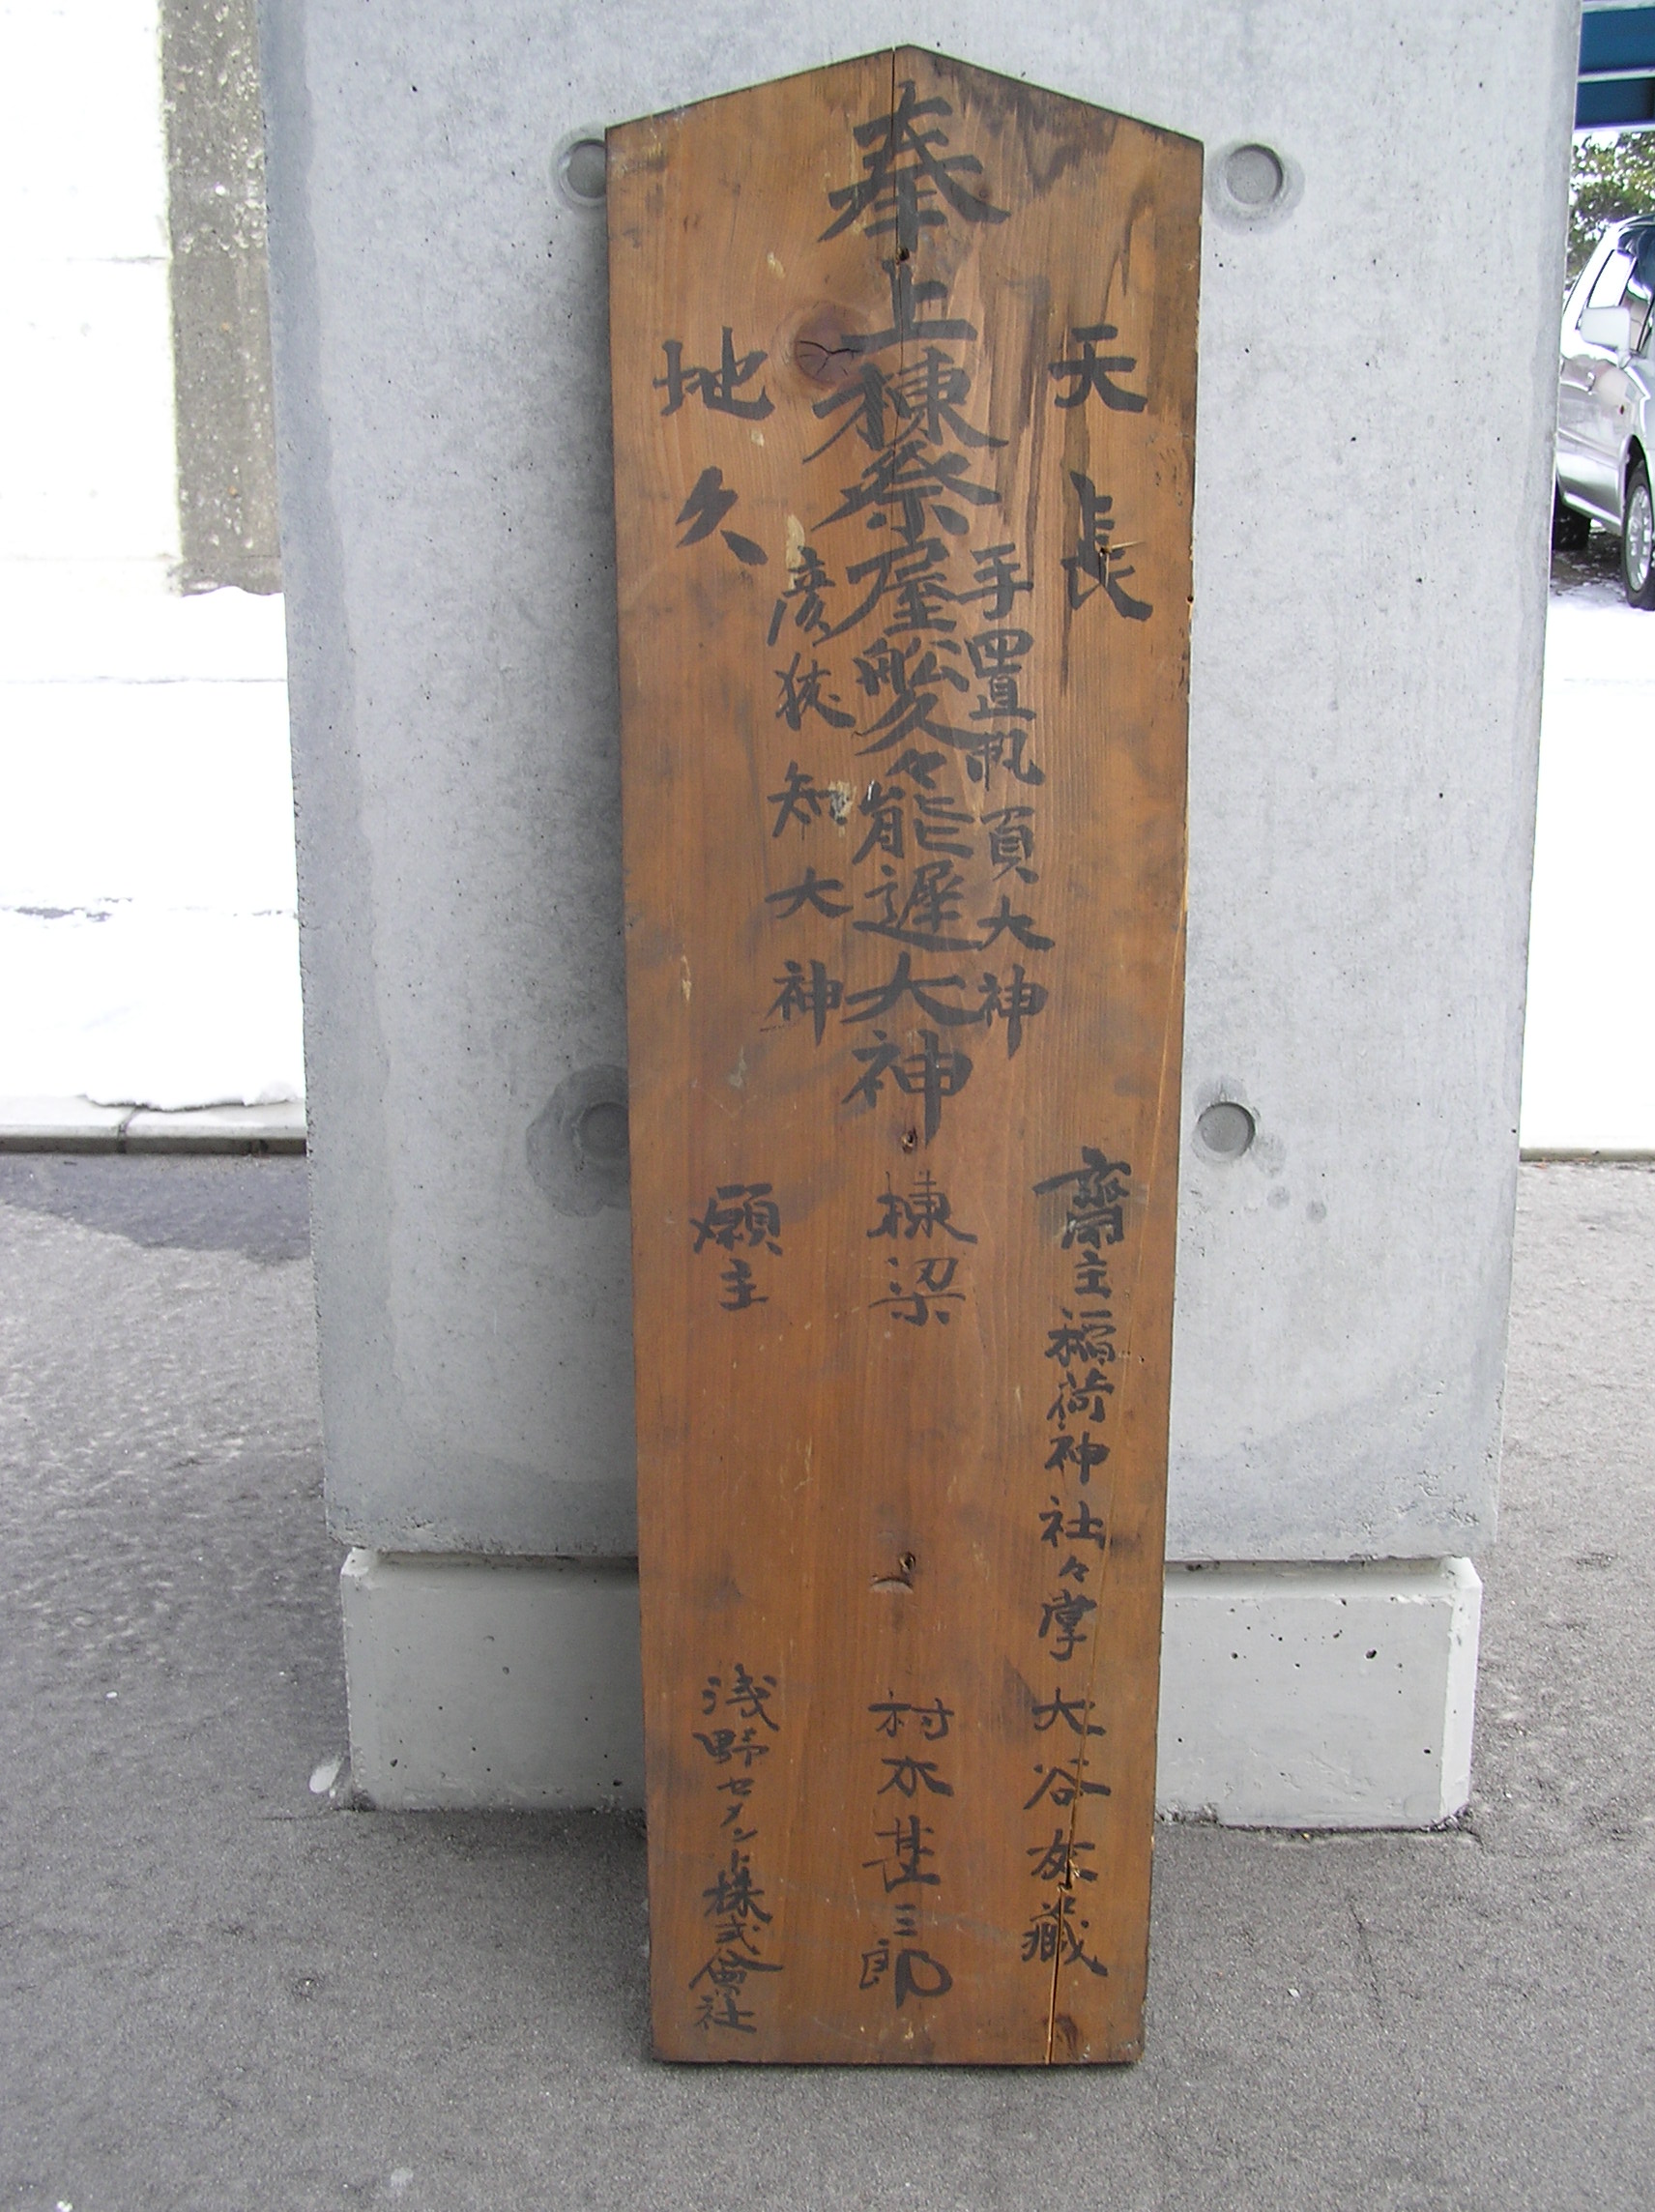 天長
手置帆負大神
奉上棟祭屋船久々能遅大神
彦狭知大神
地久
齋主稲荷神社々掌 大谷友蔵
棟梁 村木甚三郎
願主 浅野セメント株式會社